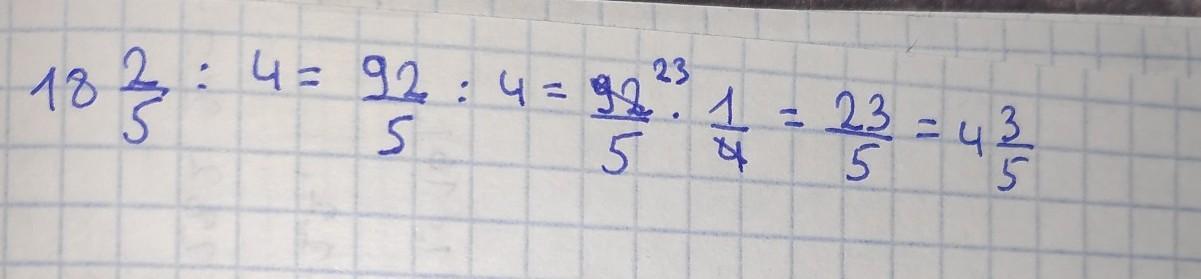 18 2/5 : 4 = 92/5 : 4 = 92/5 23 · 1/4 = 23/5 = 4 3/5